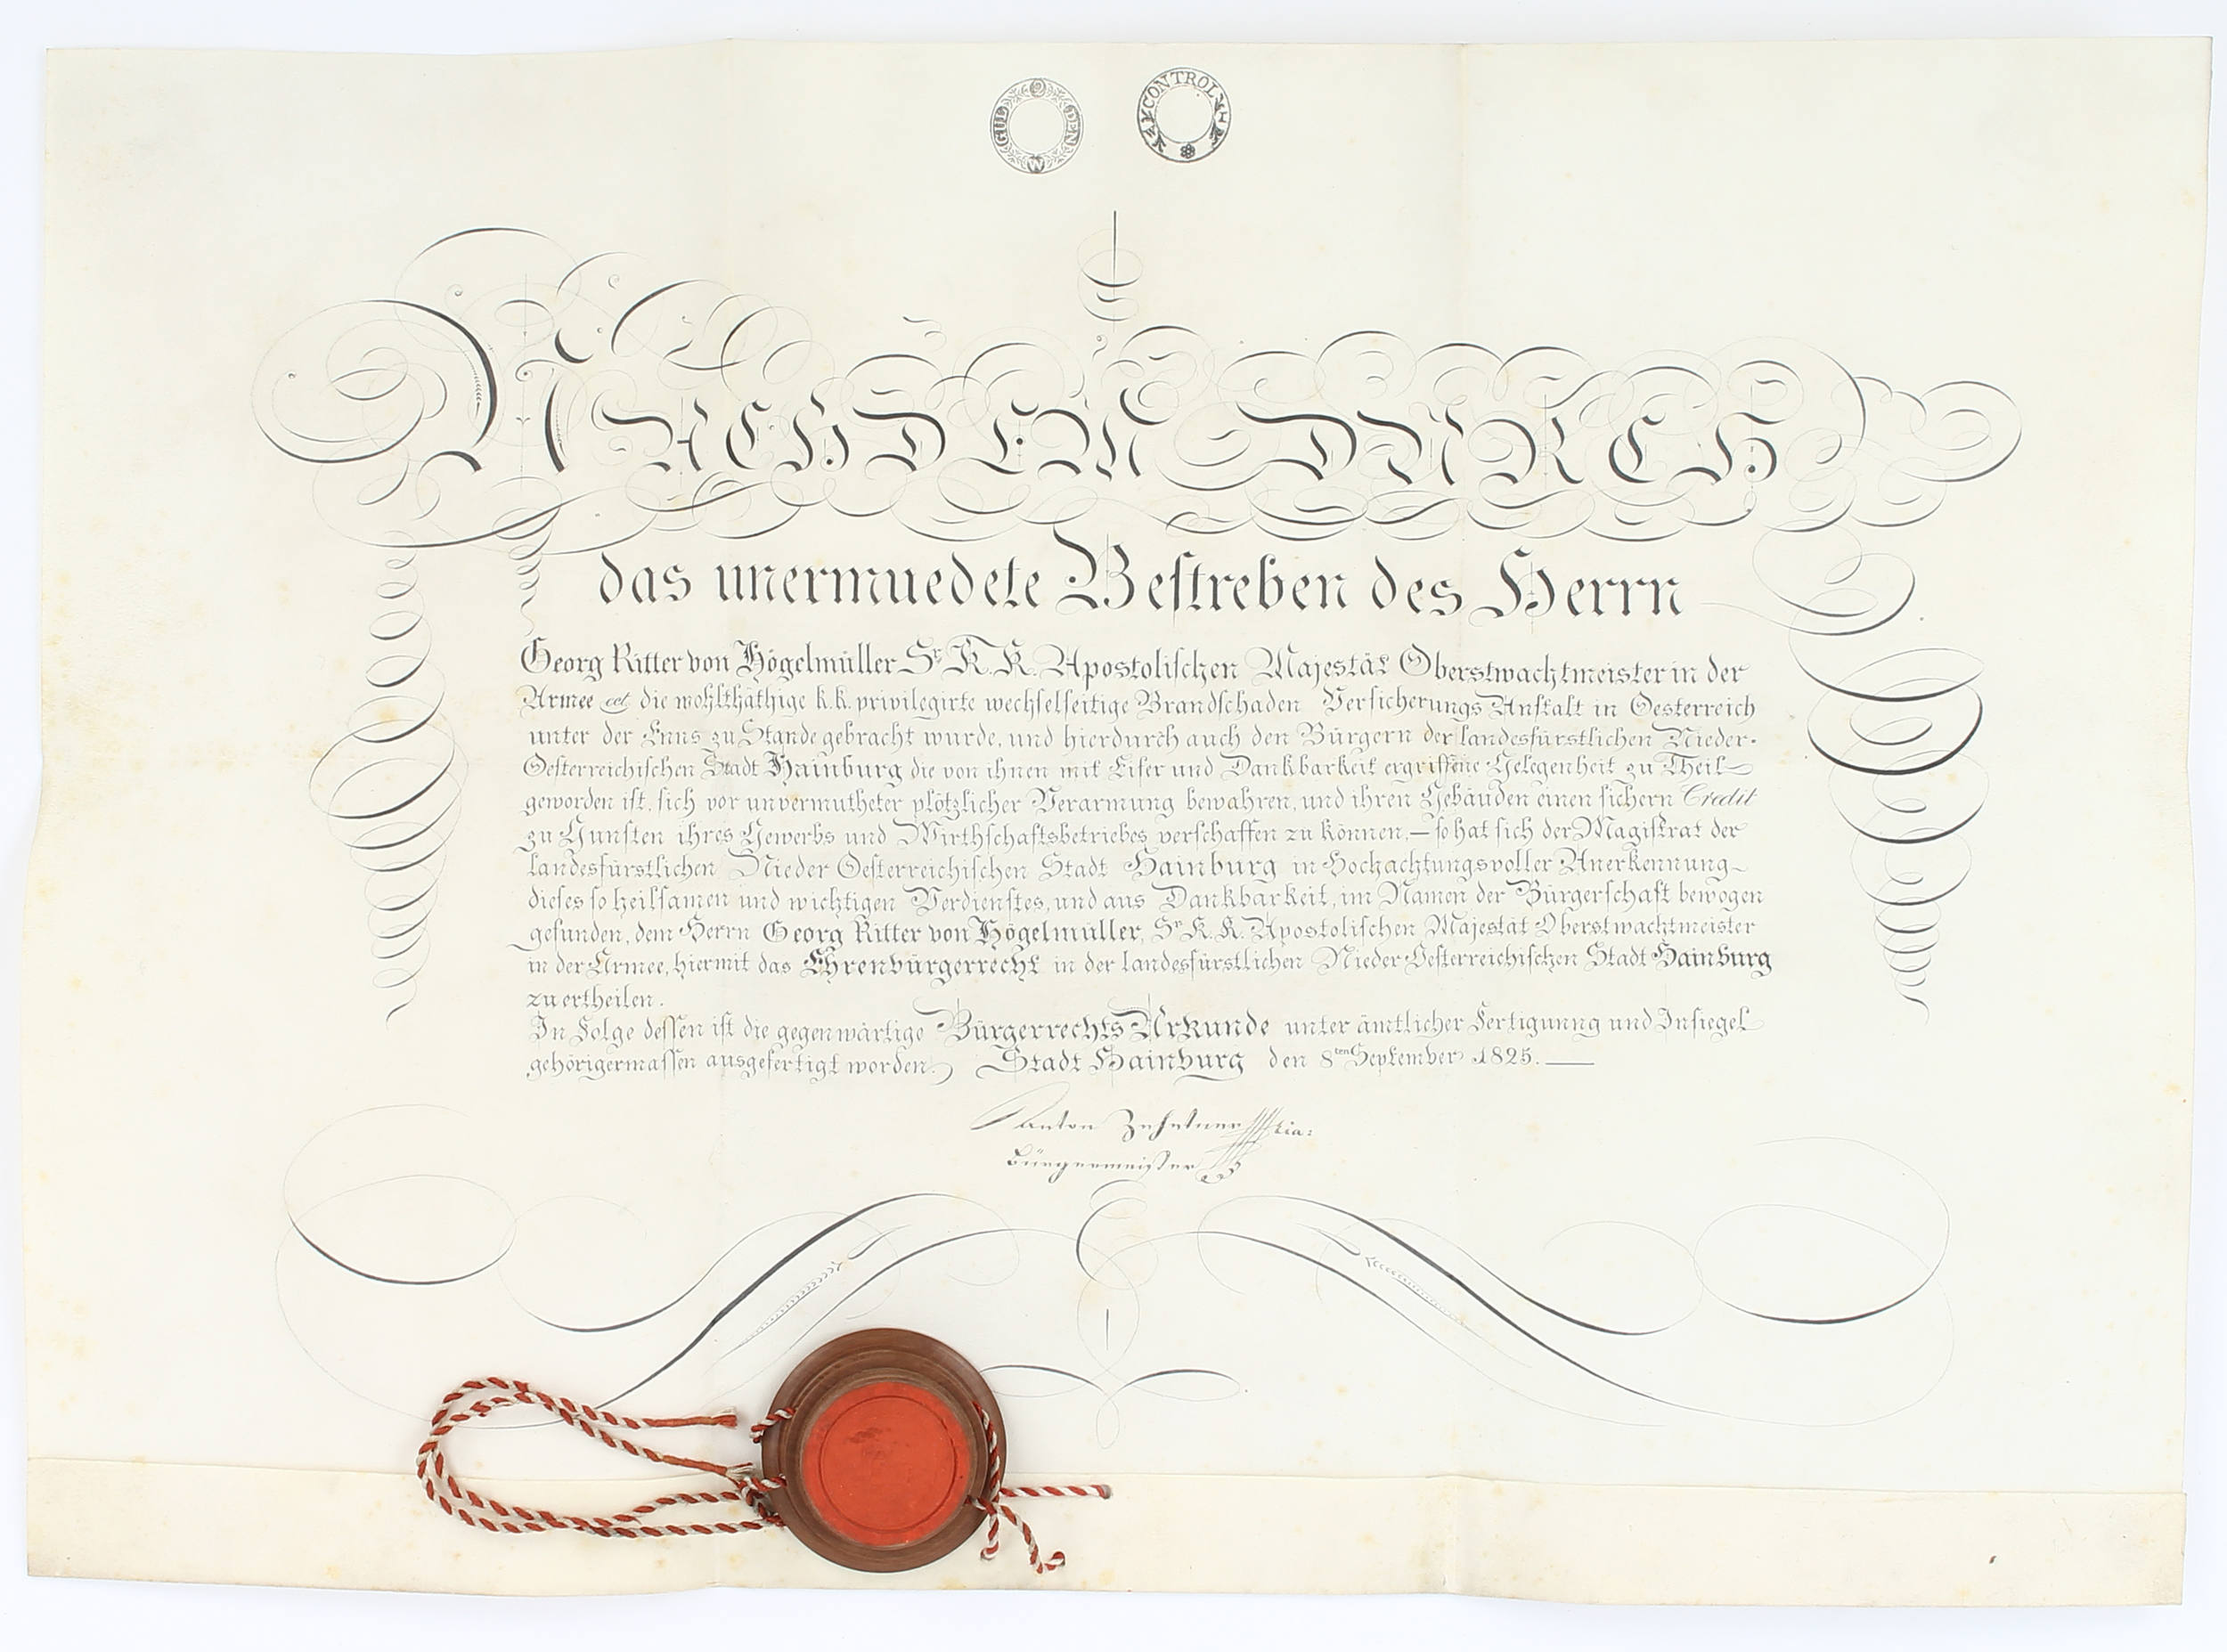 2 GULDEN W
CONTROL
NACHDEM DURCH
das unermuedete Bestreben des Herrn
Georg Ritter von Högelmüller Sr. K. K. Apostolischen Majestät Oberstwachtmeister in der
Armee etc die wohlthäthige k. k. privilegirte wechselseitige Brandschaden Versicherungs Anstalt in Oesterreich
unter der Enns zu Stande gebracht wurde, und hierdurch auch den Bürgern der landesfürstlichen Nieder-
Oesterreichischen Stadt Hainburg die von ihnen mit Eifer und Dankbarkeit ergriffene Gelegenheit zu Theil
geworden ist, sich vor unvermutheter plötzlicher Verarmung bewahren, und ihren Gebäuden einen sichern Credit
zu Gunsten ihres Gewerbs und Wirthschaftsbetriebes verschaffen zu können, — so hat sich der Magistrat der
landesfürstlichen Nieder Oesterreichischen Stadt Hainburg in Hochachtungsvoller Anerkennung
dieses so heilsamen und wichtigen Verdienstes, und aus Dankbarkeit, im Namen der Bürgerschaft bewogen
gefunden, dem Herrn Georg Ritter von Högelmüller, Sr. K. K. Apostolischen Majestät Oberstwachtmeister
in der Armee, hiermit das Ehrenbürgerrecht in der landesfürstlichen Nieder Oesterreichischen Stadt Hainburg
zu ertheilen.
In Folge dessen ist die gegenwärtige Bürgerrechts Urkunde unter ämtlicher Fertigunng und Insiegel
gehörigermassen ausgefertigt worden. Stadt Hainburg den 8ten September 1825. —
Anton Zehetner
Bürgermeister